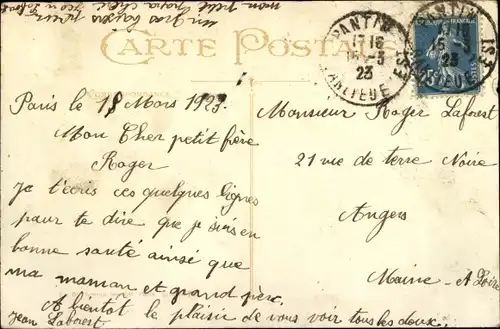 mon petit papa chéri
un gros baiser pour
CARTE POSTALE
PANTIN
15 16
15 -3
23
BANLIEUE EST
Paris le 18 Mars 1923.
Mon Cher petit frère
Roger
Je t'écris ces quelques lignes
pour te dire que je suis en
bonne santé ainsi que
ma maman et grand père.
A bientôt le plaisir de vous voir tous les deux.
Jean Laforest
Monsieur Roger Laforest
21 rue de terre Noire
Angers
Maine-A Loire